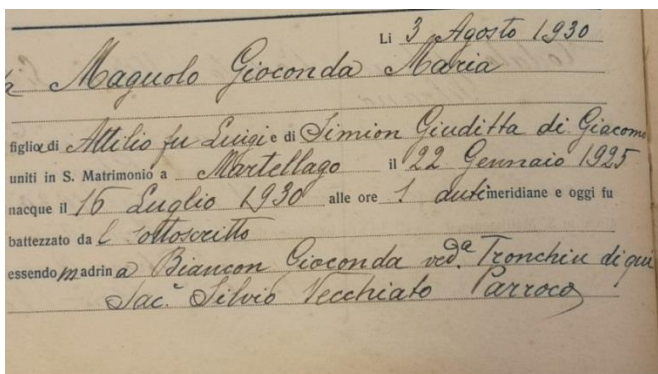 Li 3 Agosto 1930
Maguolo Gioconda Maria
figlia di Attilio fu Luigi e di Simion Giuditta di Giacomo
uniti in S. Matrimonio a Martellago il 22 Gennaio 1925
nacque il 16 Luglio 1930 alle ore 1 antimeridiane e oggi fu
battezzato da l sottoscritto
essendo madrina Biancon Gioconda ved.a Tronchin di qui
Sac. Silvio Vecchiato Parroco